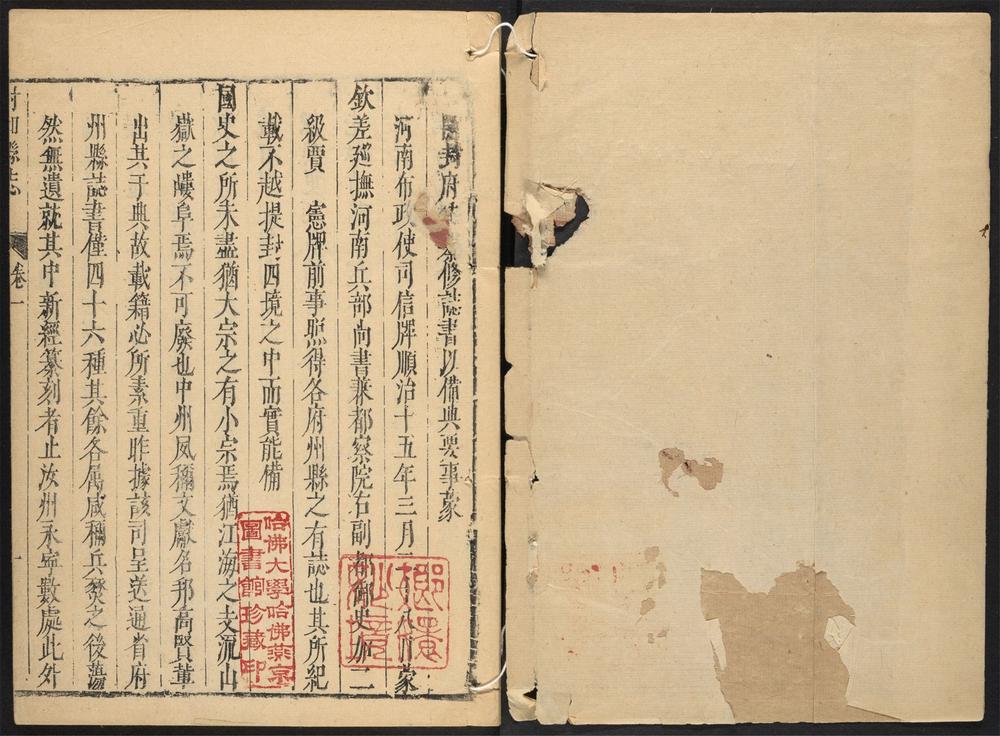 封府修誌書以備典要事蒙
河南布政使司信牌順治十五年三月二十八日蒙
欽差廵撫河南兵部尚書兼都察院右副都御史加二
級賈 憲牌前事照得各府州縣之有誌也其所紀
載不越提封四境之中而實能備
國史之所未盡猶大宗之有小宗焉猶江海之支流山
嶽之嶁阜焉不可廢也中州夙稱文獻名邦高賢輩
出其于典故載籍必所素重昨據該司呈送通省府
州縣誌書僅四十六種其餘各属咸稱兵燹之後蕩
然無遺就其中新經纂刻者止汝州永寧數處此外
封丘縣志 卷一 一
哈佛大學哈佛燕京
圖書館珍藏印